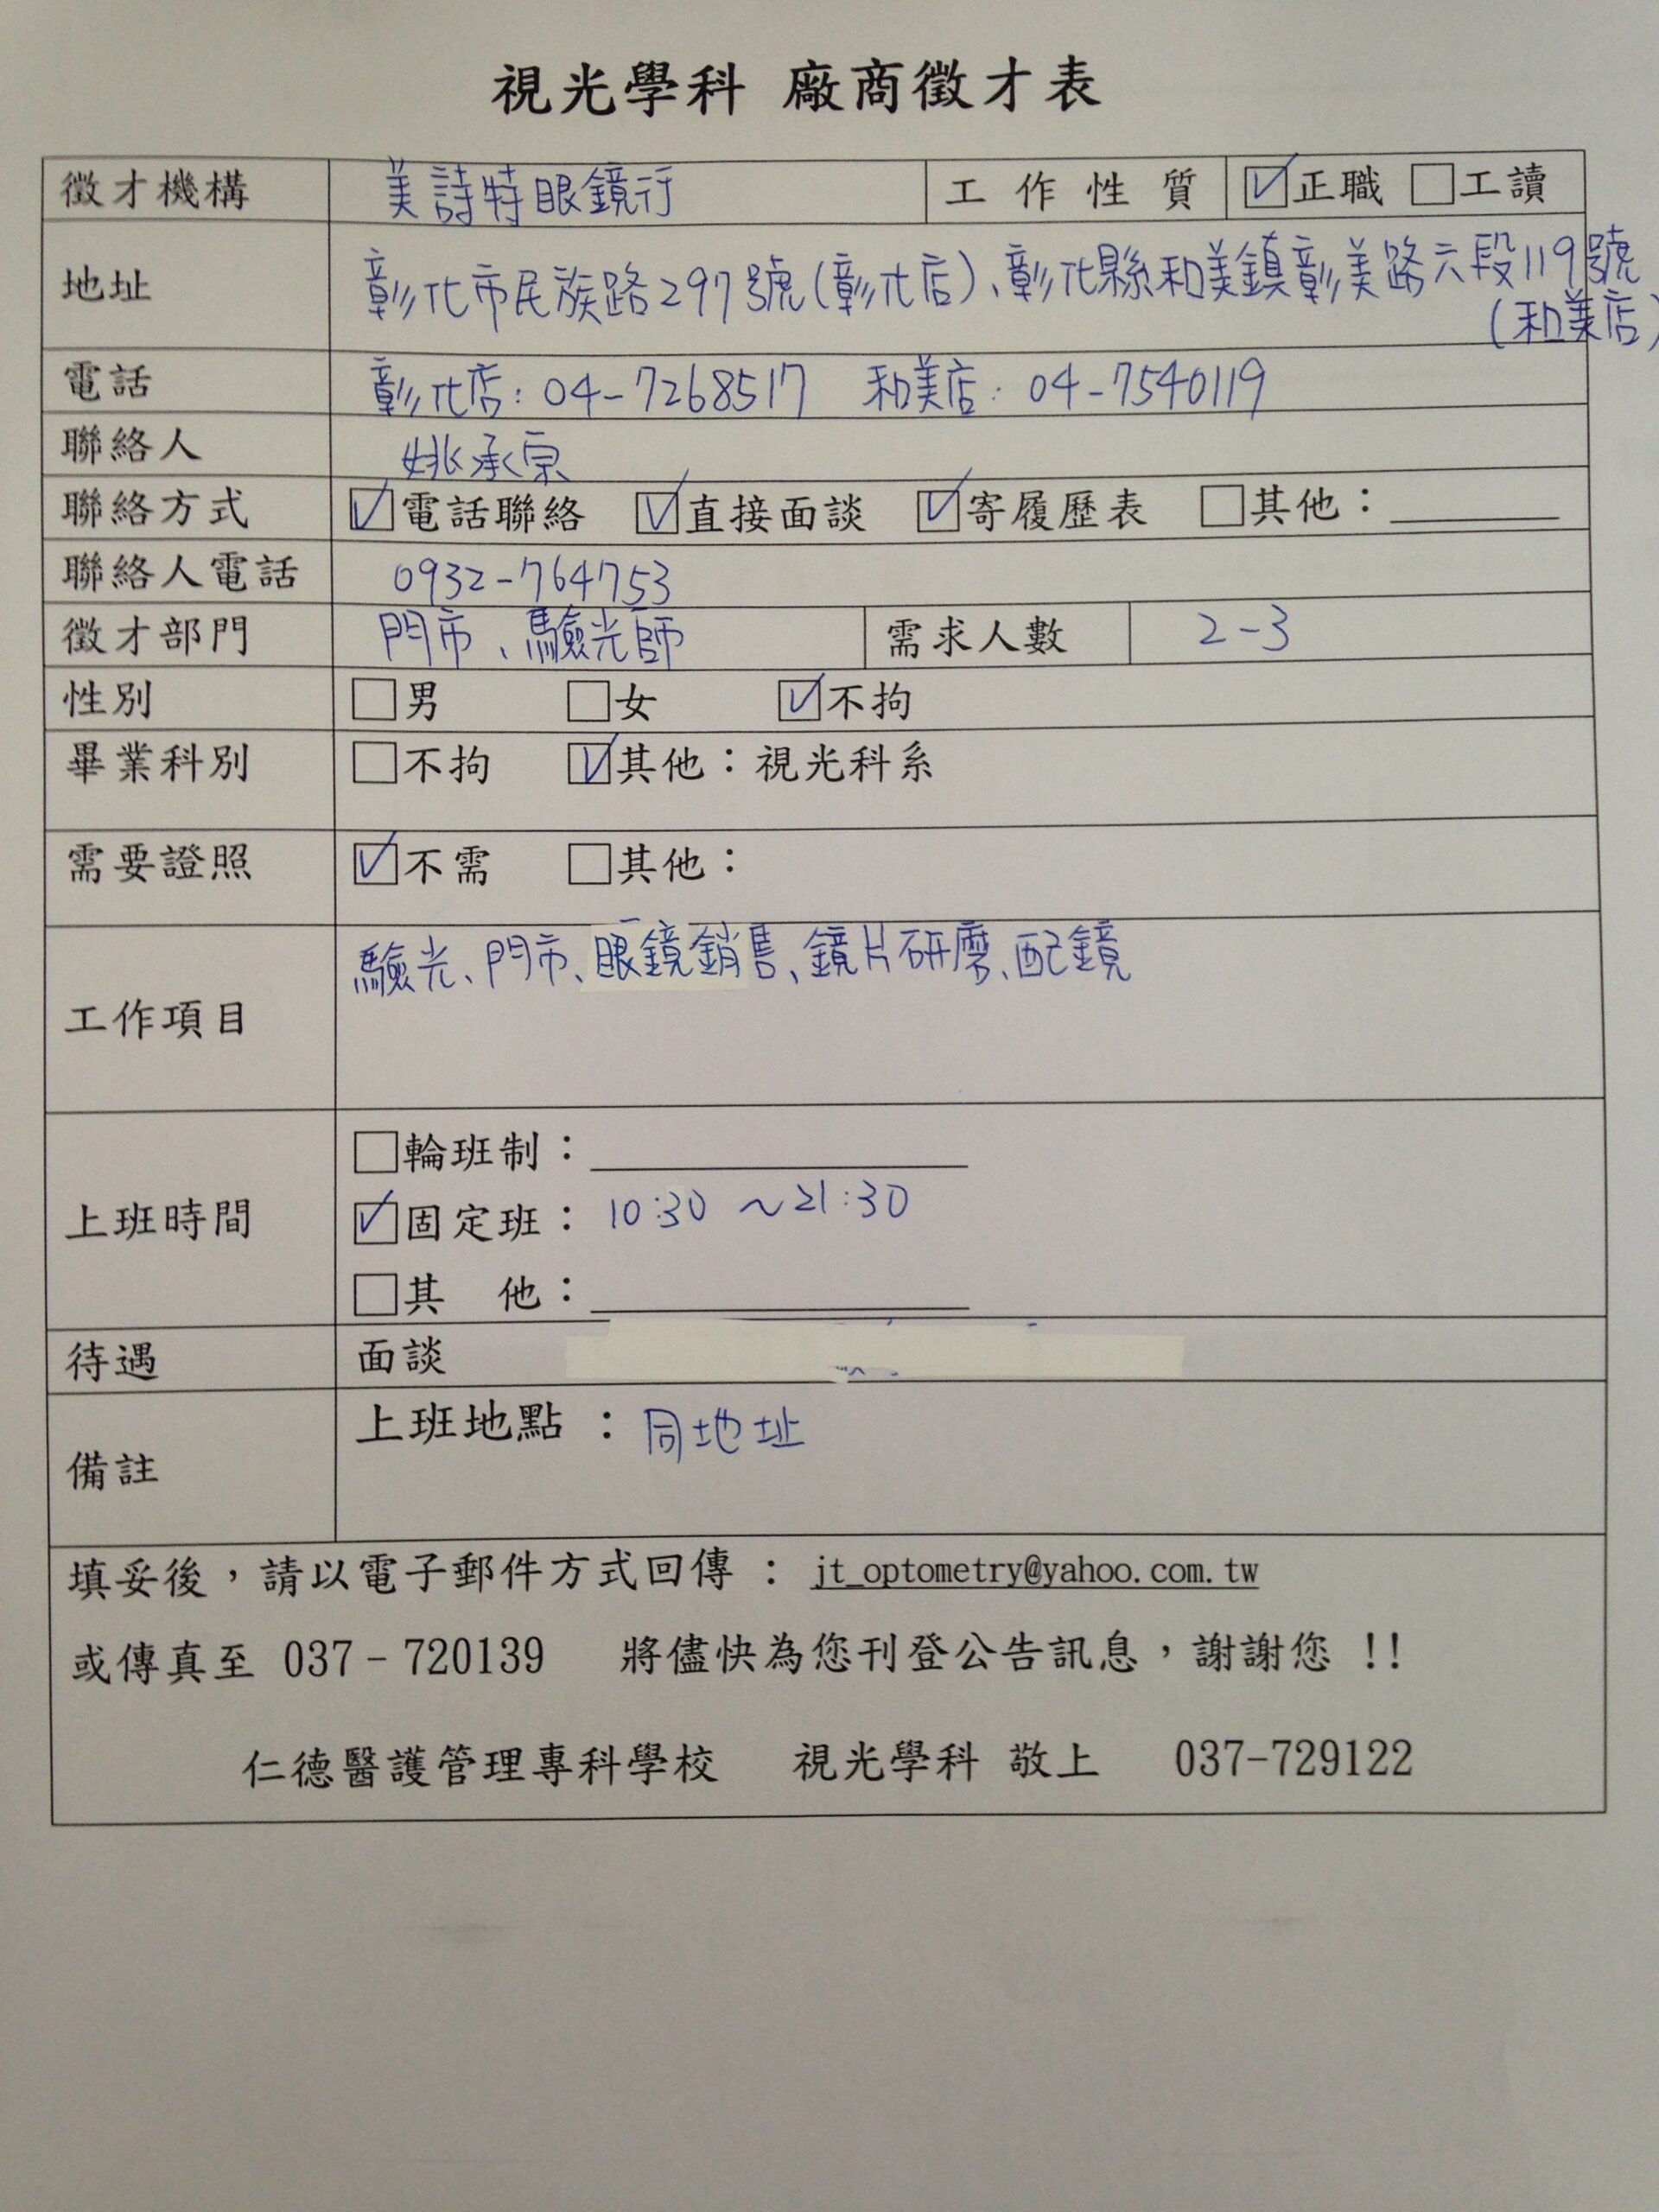 視光學科 廠商徵才表
徵才機構 美詩特眼鏡行 工作性質 ☑正職 □工讀
地址 彰化市民族路297號(彰化店)、彰化縣和美鎮彰美路六段119號
(和美店)
電話 彰化店: 04-7268517 和美店: 04-7540119
聯絡人 姚承宗
聯絡方式 ☑電話聯絡 ☑直接面談 ☑寄履歷表 □其他：
聯絡人電話 0932-764753
徵才部門 門市、驗光師 需求人數 2-3
性別 □男 □女 ☑不拘
畢業科別 □不拘 ☑其他：視光科系
需要證照 ☑不需 □其他：
工作項目 驗光、門市、眼鏡銷售、鏡片研磨、配鏡
上班時間 □輪班制：
☑固定班：10:30 ~21:30
□其 他：
待遇 面談
備註 上班地點 ：同地址
填妥後，請以電子郵件方式回傳 ： jt_optometry@yahoo.com.tw
或傳真至 037-720139 將儘快為您刊登公告訊息，謝謝您 !!
仁德醫護管理專科學校 視光學科 敬上 037-729122